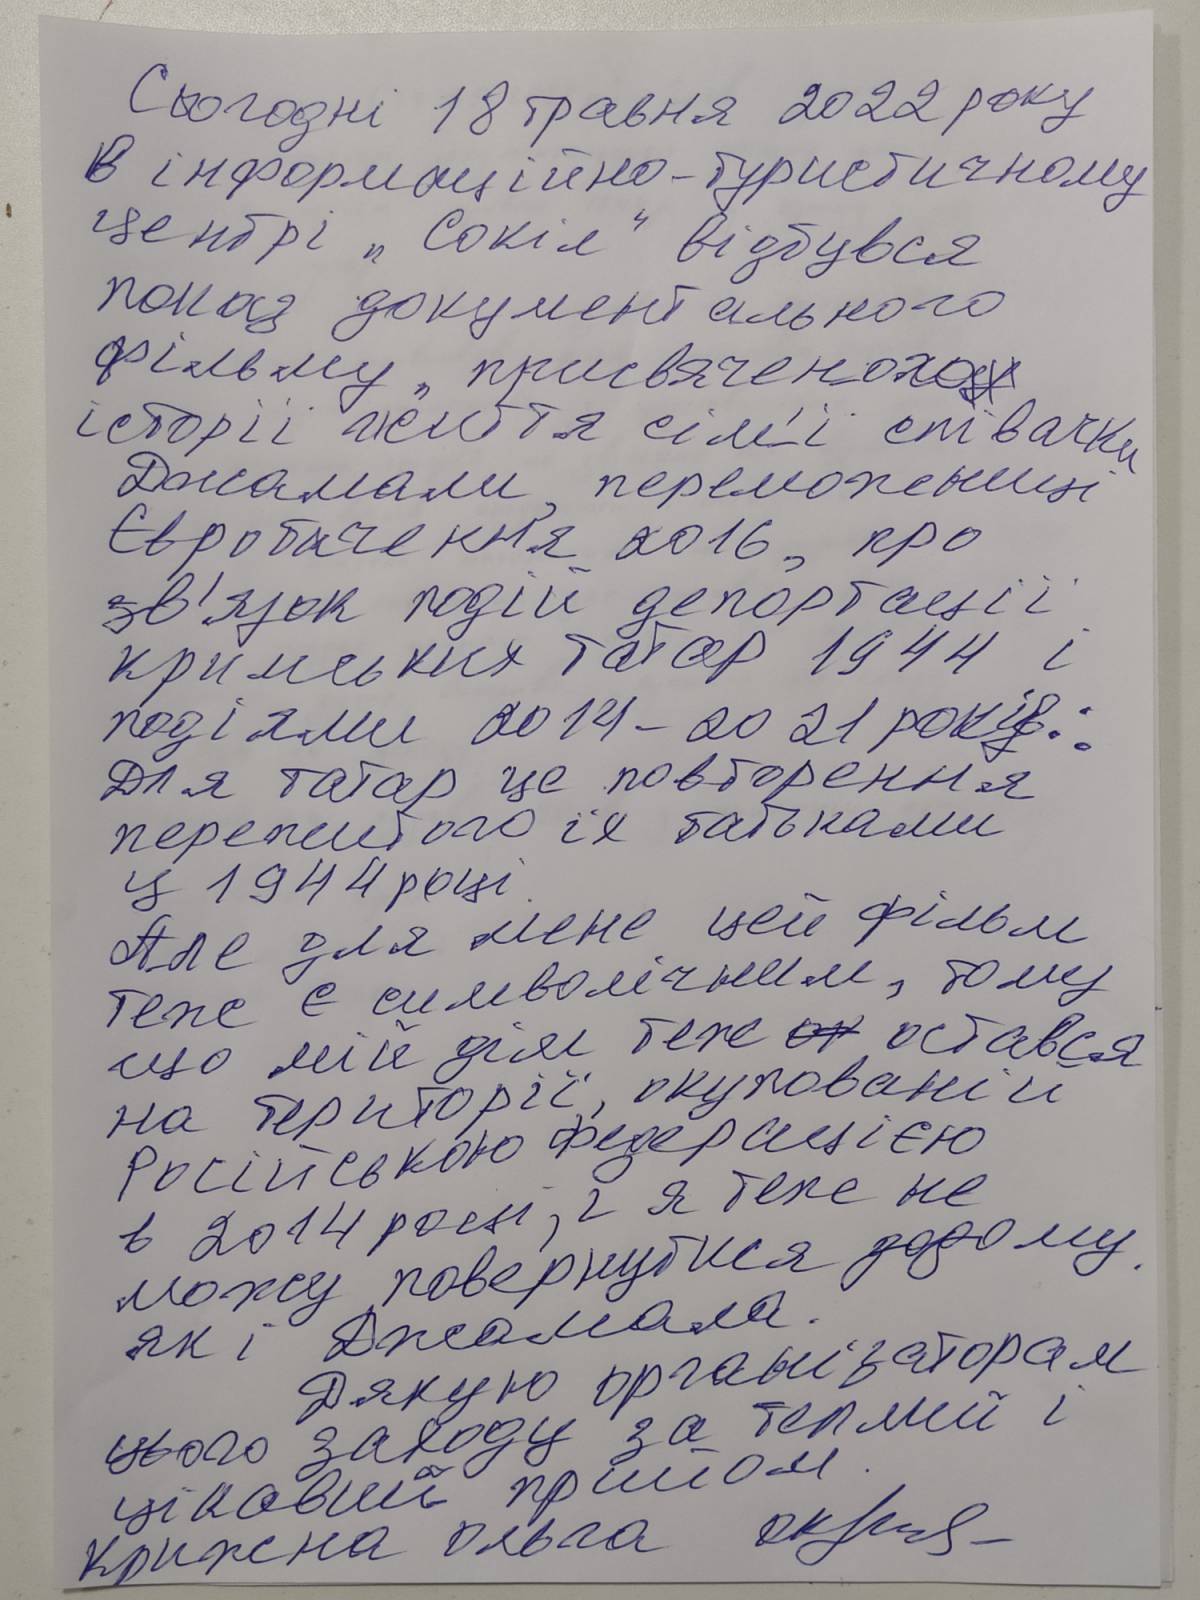 Сьогодні 18 травня 2022 року
в інформаційно-туристичному
центрі „Сокіл“ відбувся
показ документального
фільму, присвяченого
історії життя сім'ї співачки
Джамали, переможениці
Євробачення 2016, про
зв'язок подій депортації
кримських татар 1944 і
подіями 2014-2021 років.:
Для татар це повторення
пережитого їх батьками
у 1944 році.
Але для мене цей фільм
теже є символічним, тому
що мій дім теже остався
на території, окупованій
Російською Федерацією
в 2014 році, і я теже не
можу повернутися додому.
як і Джамала.
Дякую організаторам
цього заходу за теплий і
цікавий прийом.
Крижена Ольга